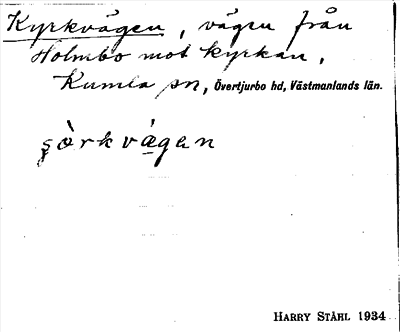 Kyrkvägen, vägen från
Holmbo mot kyrkan,
Kumla sn, Övertjurbo hd, Västmanlands län.
ṣòrkvágen
HARRY STÅHL 1934